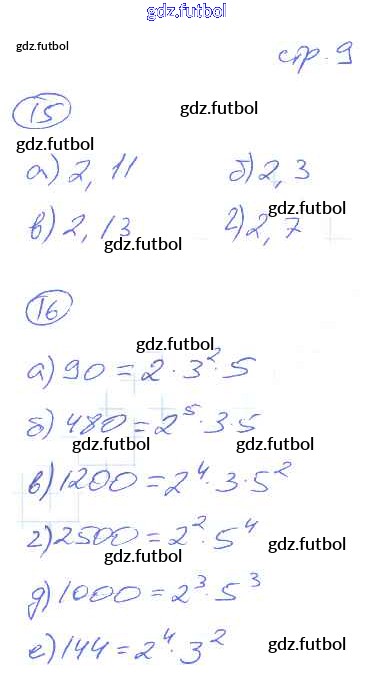 gdz.futbol
gdz.futbol стр. 9
15 gdz.futbol
gdz.futbol
а) 2, 11 б) 2, 3
gdz.futbol
в) 2, 13 г) 2, 7
gdz.futbol
16
gdz.futbol
а) 90 = 2 · 3² · 5
б) 480 = 2⁵ · 3 · 5
gdz.futbol gdz.futbol
в) 1200 = 2⁴ · 3 · 5²
gdz.futbol
г) 2500 = 2² · 5⁴
gdz.futbol gdz.futbol
д) 1000 = 2³ · 5³
gdz.futbol
е) 144 = 2⁴ · 3²